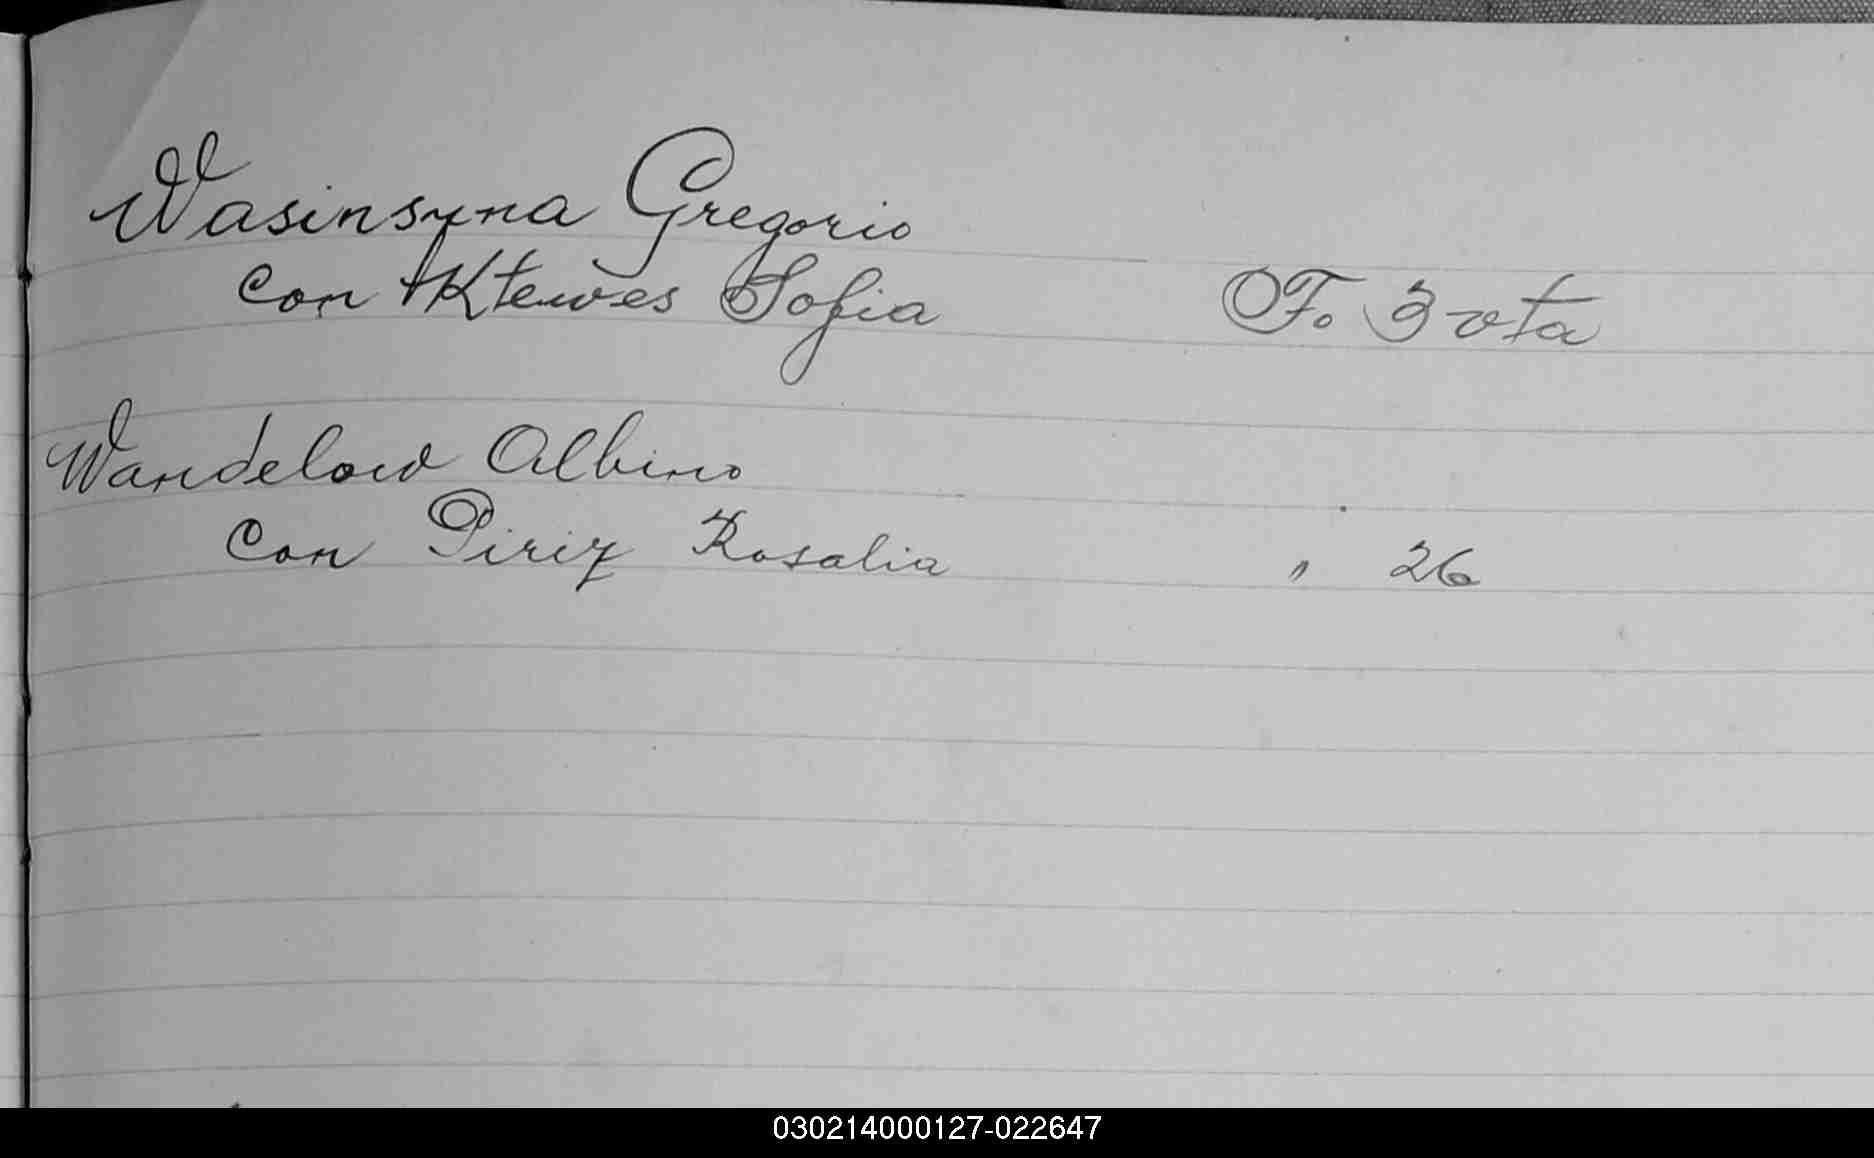 Wasinsyna Gregorio
con Ktewes Sofia F. 3 vta
Wandelow Albino
con Piriz Rosalia " 26
030214000127-022647